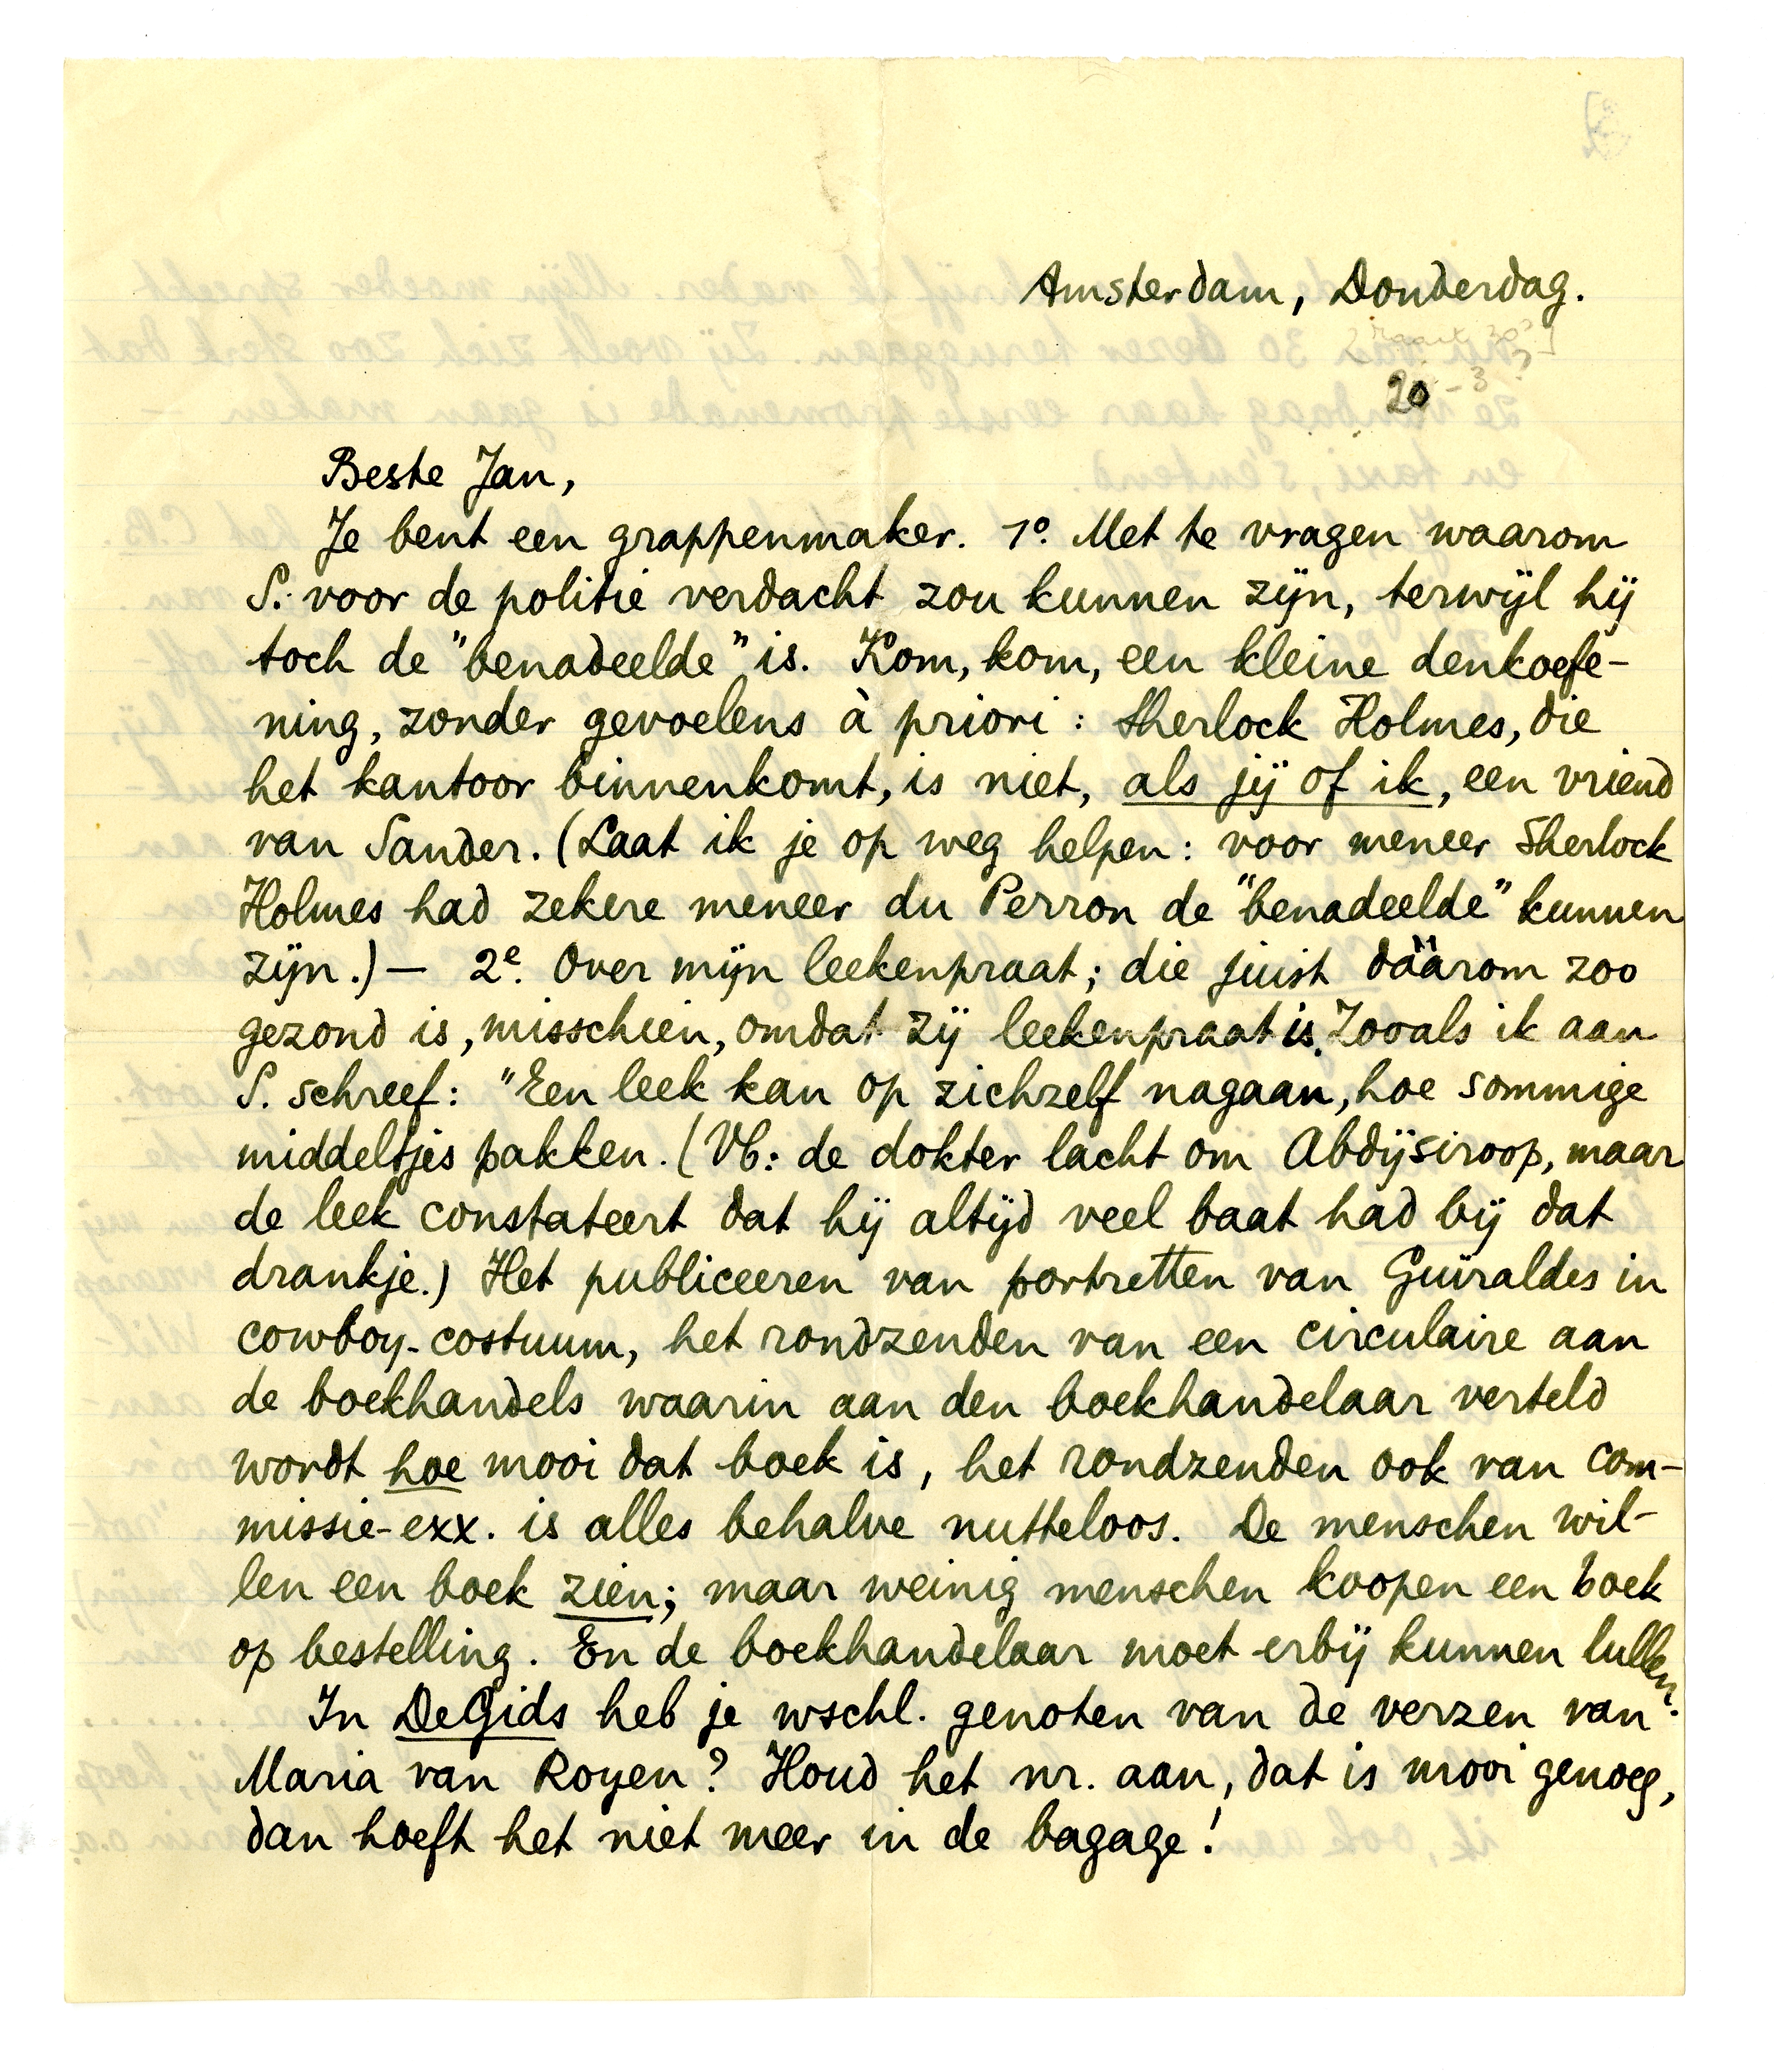 Amsterdam, Donderdag.
[Maart 30?]
20-3?
Beste Jan,
Je bent een grappenmaker. 1º. Met te vragen waarom
S. voor de politie verdacht zou kunnen zijn, terwijl hij
toch de "benadeelde" is. Kom, kom, een kleine denkoefe-
ning, zonder gevoelens à priori: Sherlock Holmes, die
het kantoor binnenkomt, is niet, als jij of ik, een vriend
van Sander. (Laat ik je op weg helpen: voor meneer Sherlock
Holmes had zekere meneer du Perron de "benadeelde" kunnen
zijn.) — 2e. Over mijn leekenpraat; die juist dáárom zoo
gezond is, misschien, omdat zij leekenpraat is. Zooals ik aan
S. schreef: "Een leek kan op zichzelf nagaan, hoe sommige
middeltjes pakken. (Vb: de dokter lacht om Abdijsiroop, maar
de leek constateert dat hij altijd veel baat had bij dat
drankje.) Het publiceeren van portretten van Guïraldes in
cowboy-costuum, het rondzenden van een circulaire aan
de boekhandels waarin aan den boekhandelaar verteld
wordt hoe mooi dat boek is, het rondzenden ook van com-
missie-exx. is alles behalve nutteloos. De menschen wil-
len een boek zien; maar weinig menschen koopen een boek
op bestelling. En de boekhandelaar moet erbij kunnen lullen.
In De Gids heb je wschl. genoten van de verzen van
Maria van Royen? Houd het nr. aan, dat is mooi genoeg,
dan hoeft het niet meer in de bagage!